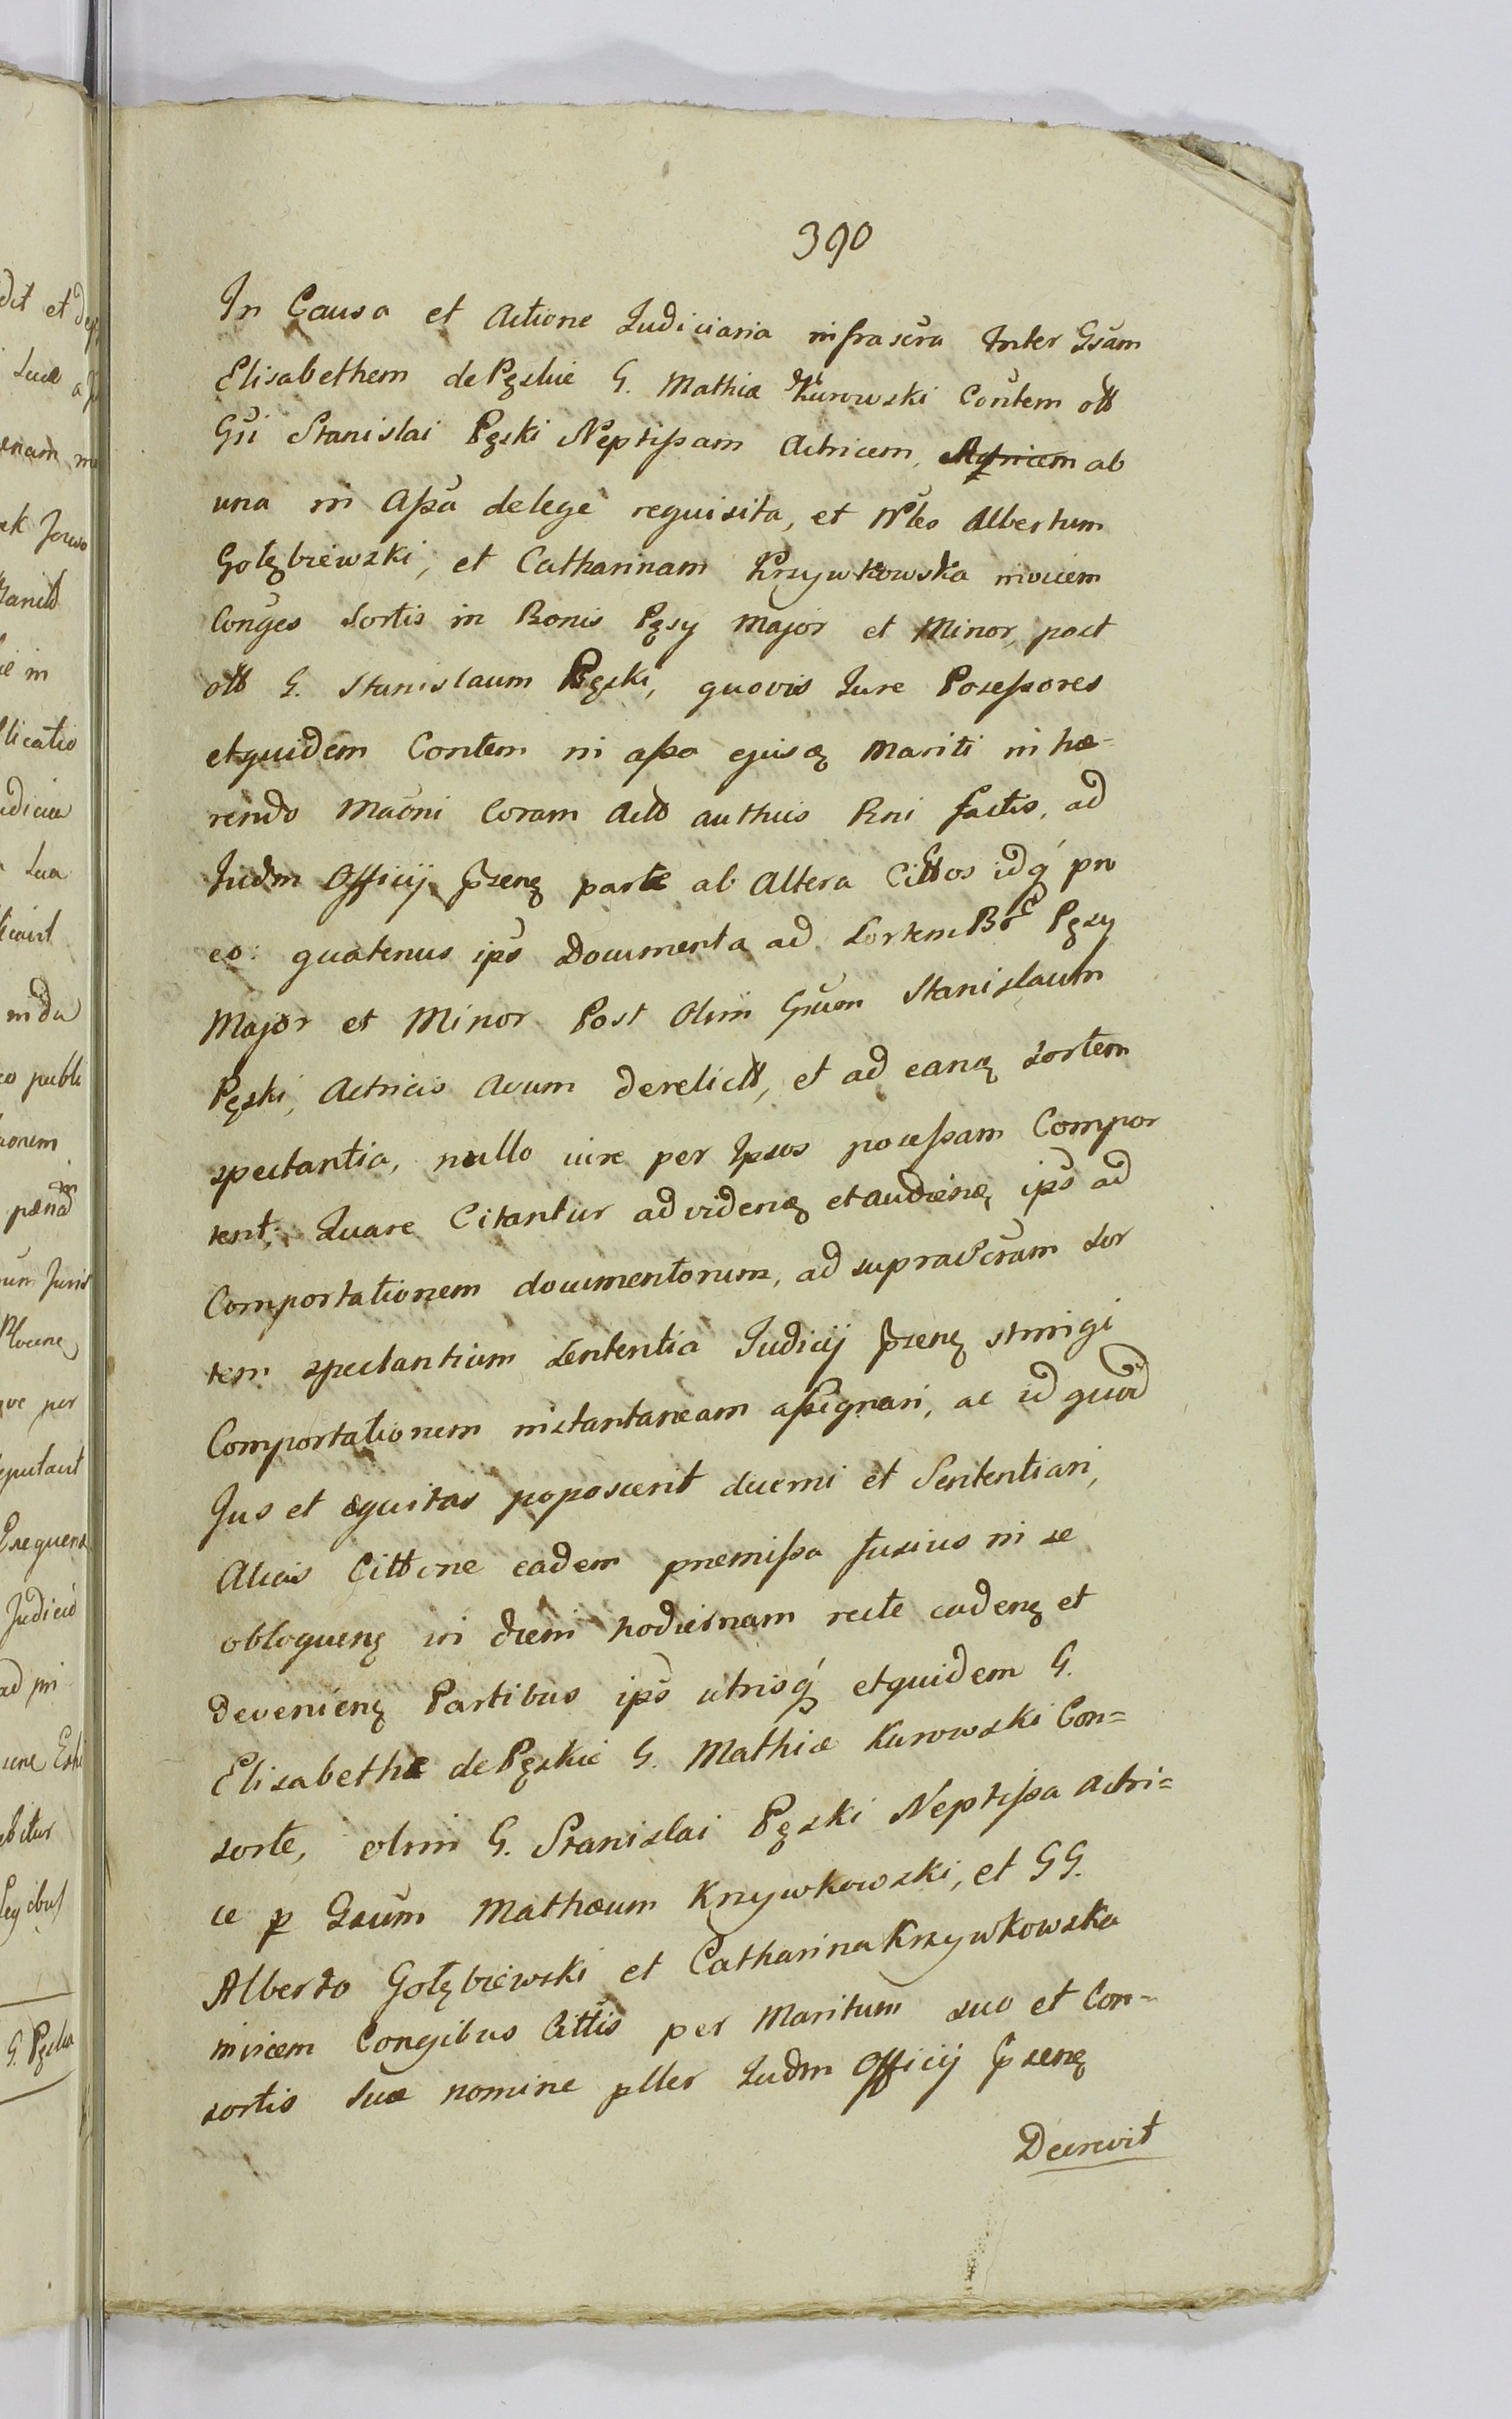 390
In Causa et Actione Judiciaria infrascra Inter Gsam
Elisabethem de Pęskie G. Mathiæ Kurowski Contem olt
Gsi Stanislai Pęski Neptissam Actricem, Actricem ab
una in Assa de lege requisita, et Nbles Albertum
Gołębiewski, et Catharinam Krzywkowska invicem
Conges Sortis in Bonis Pęsy Major et Minor, post
olt G. Stanislaum Pęski, quovis Jure Posessores
et quidem Contem in assa ejusq Mariti inhæ-
rendo Maoni Coram Actis authcis Rni factis, ad
Judm Officij Prsenę parte ab Altera Cittos idq pro
eo: quatenus ips Documenta ad Sortem Br Pęsy
Major et Minor Post Olim Gsum Stanislaum
Pęski, Actricis Avum derelicta, et ad eanę Sortem
spectantia, nullo iure per Ipsos posessam Compor
tent; Quare Citantur ad videnę et audienę ips ad
Comportationem documentorum, ad supradcram Sor
tem spectantium Sententia Judicij Prsenę stringi
Comportationem instantaneam assignari, ac id quod
Jus et æquitas poposcerit decerni et Sententiari,
Alias Cittione eadem præmissa fusius in se
obloquenę in diem hodiernam recte cadenę et
devenienę Partibus ips utrisq et quidem G.
Elisabethæ de Pęskie G. Mathiæ Kurowski Con=
sorte, olim G. Stanislai Pęski Neptissa Actri=
ce p Gsum Mathæum Krzywkowski, et GG.
Alberto Gołębiewski et Catharina Krzywkowska
invicem Congibus Cittis per Maritum suo et Con-
sortis suæ nomine pller Judm Officij Prsenę
Decrevit